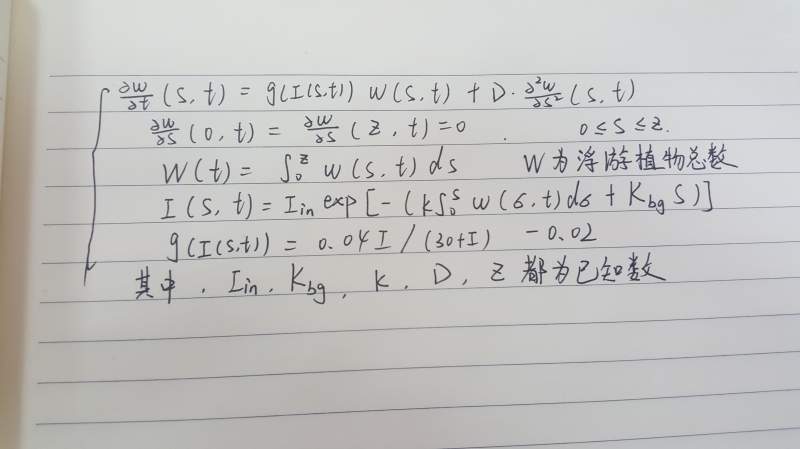 ∂w/∂t (s,t) = g(I(s,t)) w(s,t) + D · ∂²w/∂s² (s,t)
∂w/∂s (0,t) = ∂w/∂s (z,t) = 0 . 0 ≤ s ≤ z.
W(t) = ∫₀ᶻ w(s,t) ds W为浮游植物总数
I(s,t) = I_in exp[-(k∫₀ˢ w(σ,t)dσ + K_bg s)]
g(I(s,t)) = 0.04I/(30+I) -0.02
其中, I_in, K_bg, k, D, z 都为已知数